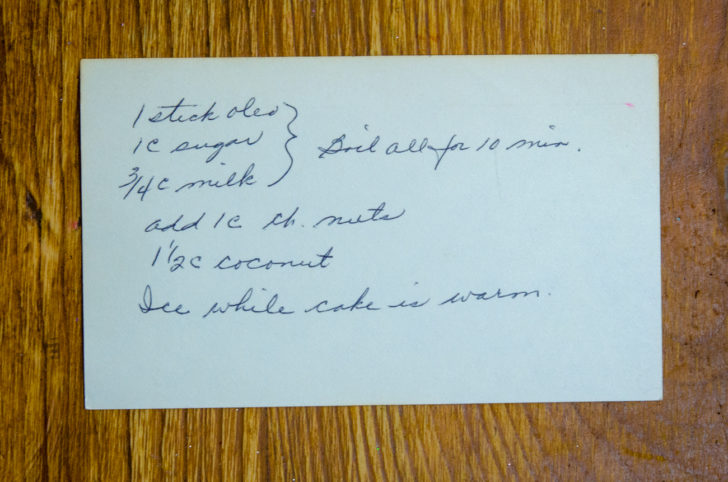 1 stick oleo
1c sugar } Boil all for 10 min.
3/4c milk
add 1c ch. nuts
1 1/2c coconut
Ice while cake is warm.